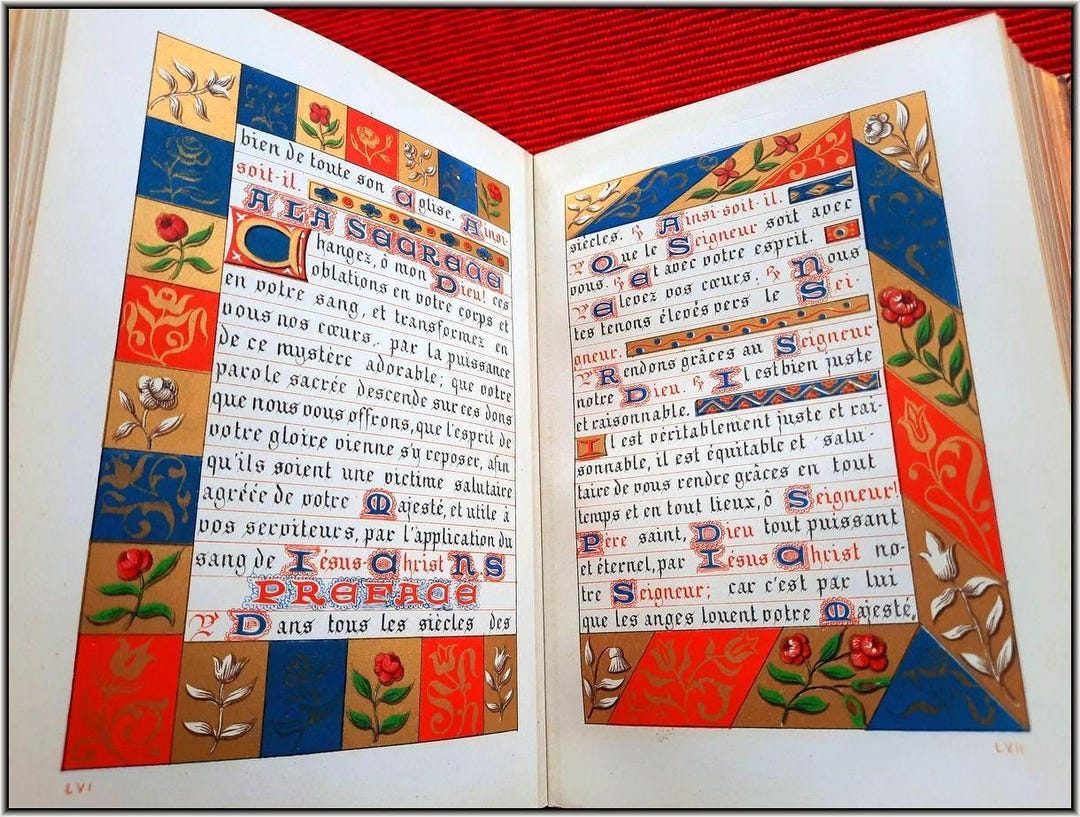 bien de toute son Eglise. Ainsi-
soit-il.
A LA SECRETE
Changez, ô mon Dieu! ces
oblations en votre corps et
en votre sang, et transformez en
vous nos cœurs, par la puissance
de ce mystère adorable; que votre
parole sacrée descende sur ces dons
que nous vous offrons, que l'esprit de
votre gloire vienne s'y reposer, afin
qu'ils soient une victime salutaire
agréée de votre Majesté, et utile à
vos serviteurs, par l'application du
sang de Jésus-Christ N S
PREFACE
℣ Dans tous les siècles des
LVI
siècles. ℟ Ainsi-soit-il.
℣ Que le Seigneur soit avec
vous. ℟ Et avec votre esprit.
℣ Elevez vos cœurs. ℟ Nous
les tenons élevés vers le Sei-
gneur.
℣ Rendons grâces au Seigneur
notre Dieu. ℟ Il est bien juste
et raisonnable.
Il est véritablement juste et rai-
sonnable, il est équitable et salu-
taire de vous rendre grâces en tout
temps et en tout lieux, ô Seigneur!
Père saint, Dieu tout puissant
et éternel, par Jésus Christ no-
tre Seigneur; car c'est par lui
que les anges louent votre Majesté,
LVII